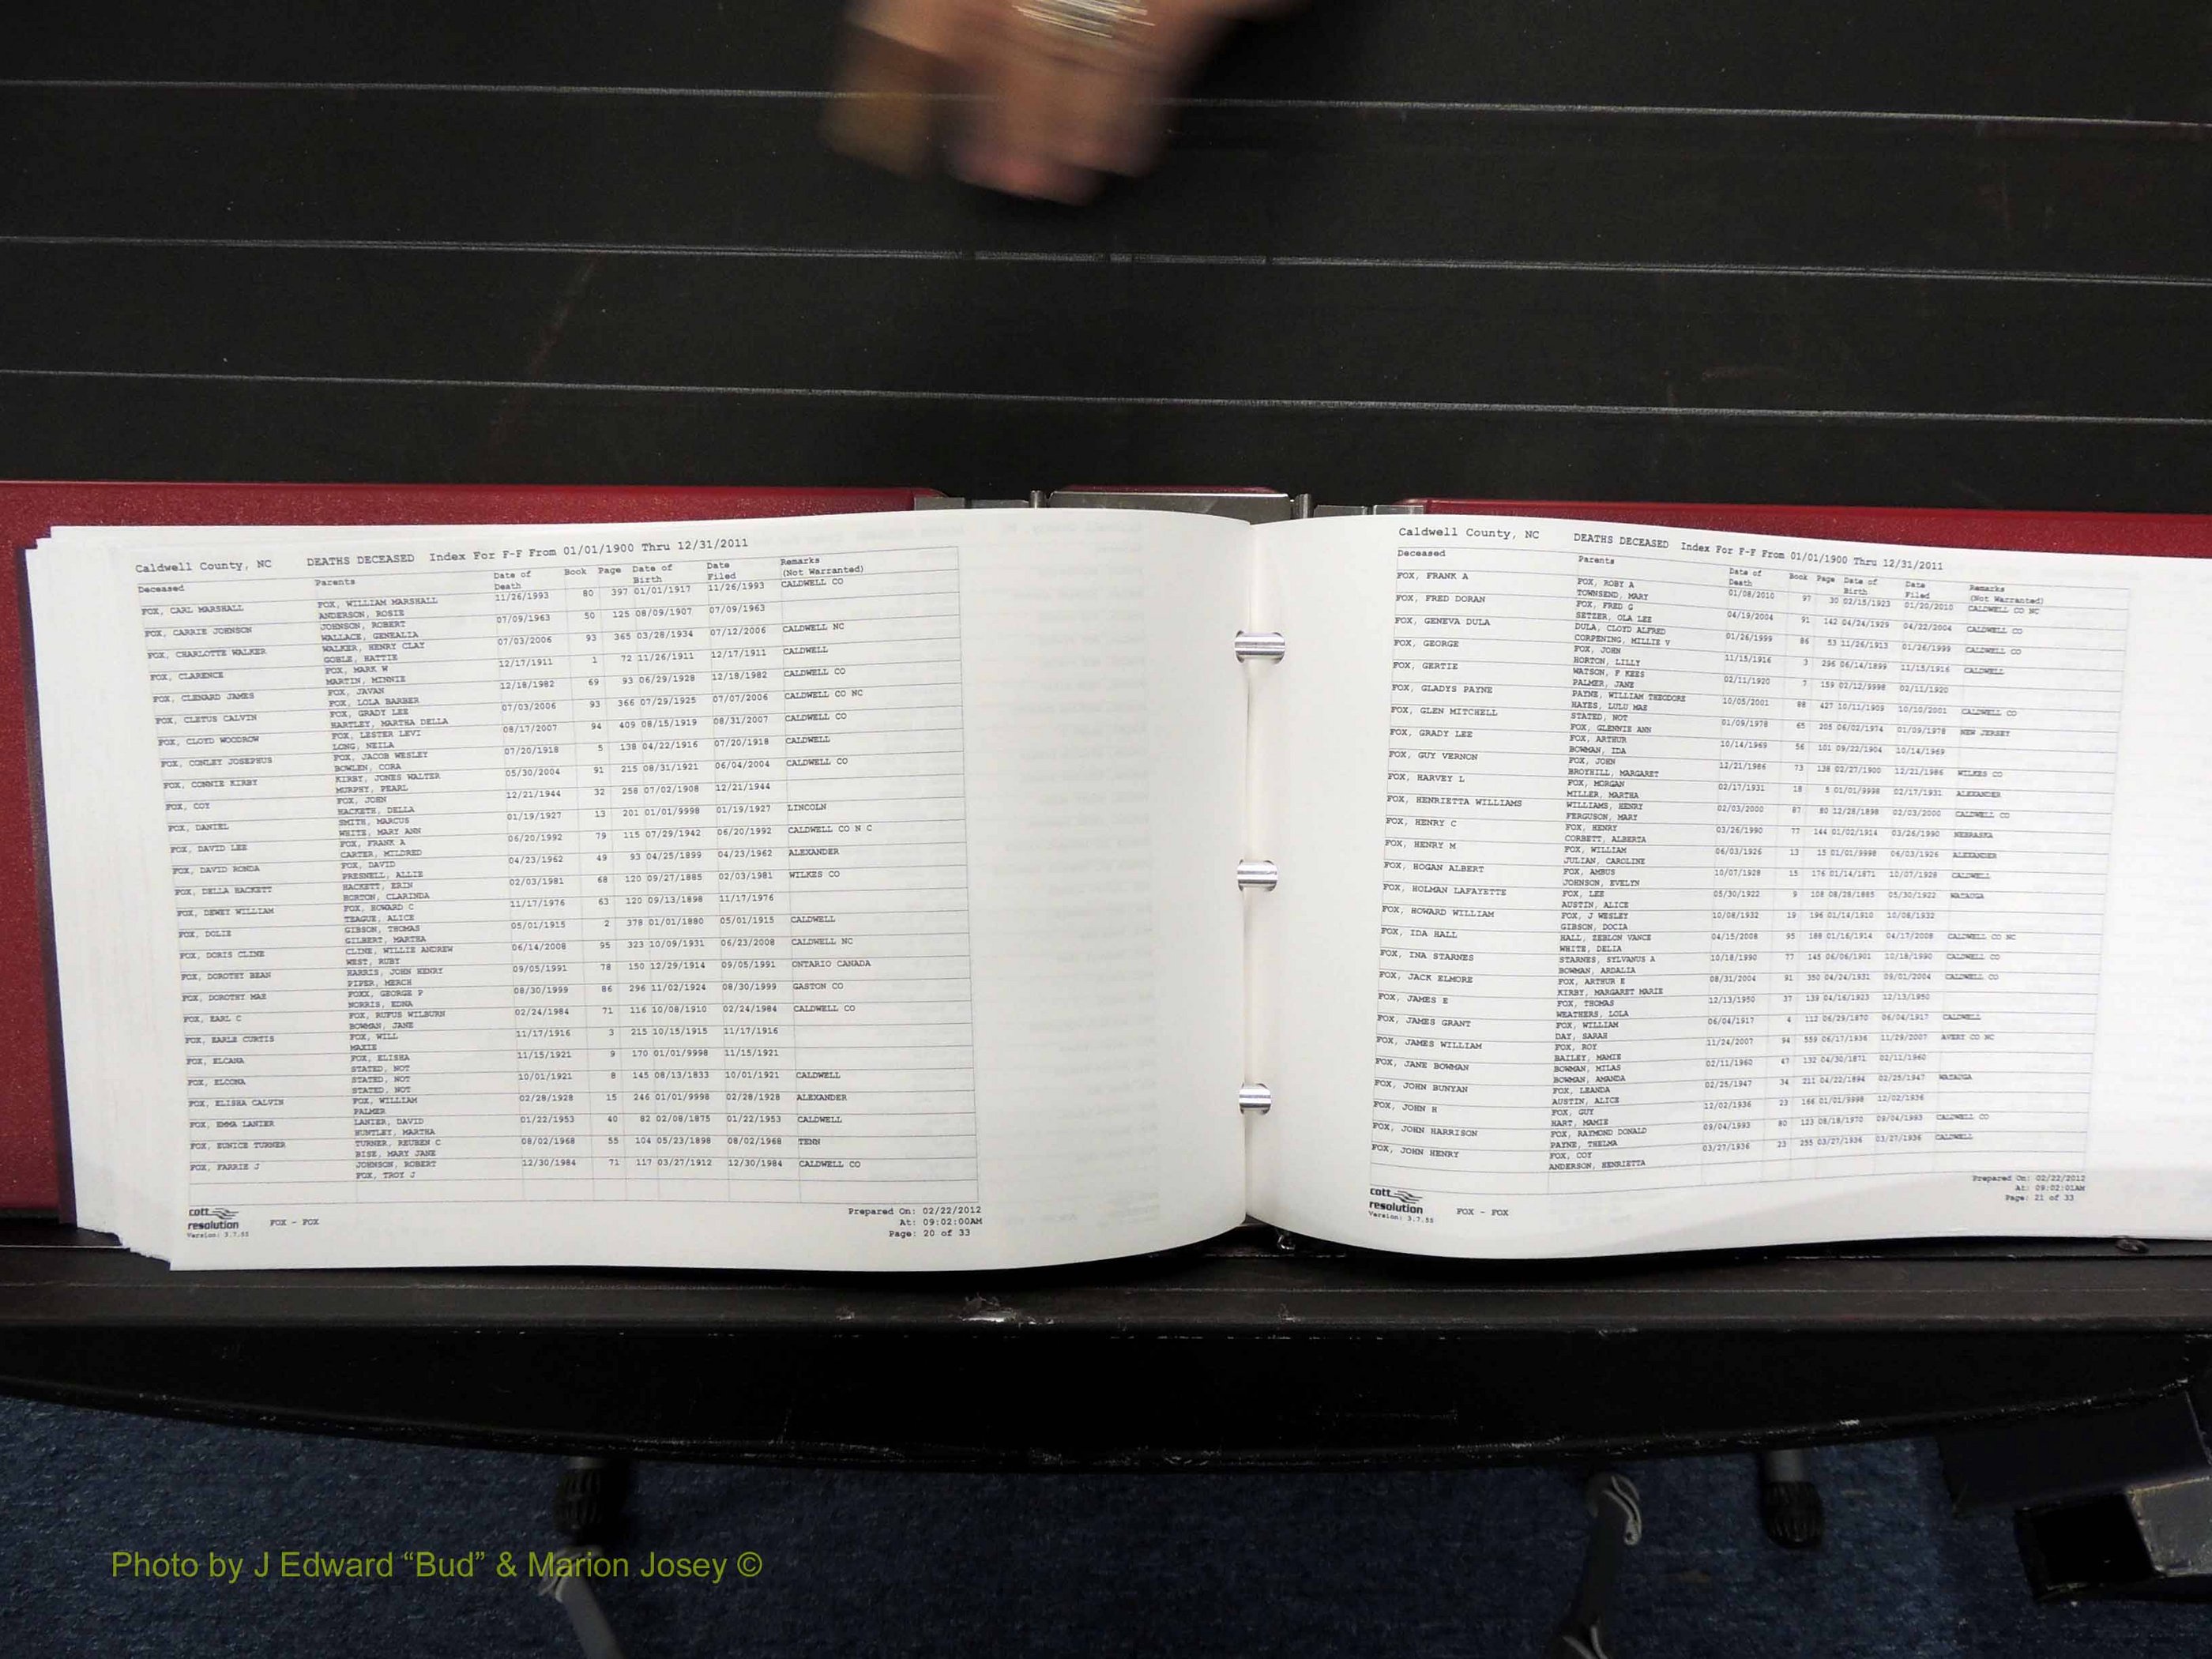 Caldwell County, NC DEATHS DECEASED Index For F-F From 01/01/1900 Thru 12/31/2011
Deceased Parents Date of Death Book Page Date of Birth Date Filed Remarks (Not Warranted)
FOX, CARL MARSHALL FOX, WILLIAM MARSHALL 11/26/1993 80 397 01/01/1917 11/26/1993 CALDWELL CO
ANDERSON, ROSIE
FOX, CARRIE JOHNSON JOHNSON, ROBERT 07/09/1963 50 125 08/09/1907 07/09/1963
WALLACE, GENEALIA
FOX, CHARLOTTE WALKER WALKER, HENRY CLAY 07/03/2006 93 365 03/28/1934 07/12/2006 CALDWELL NC
GOBLE, HATTIE
FOX, CLARENCE FOX, MARK W 12/17/1911 1 72 11/26/1911 12/17/1911 CALDWELL
MARTIN, MINNIE
FOX, CLENARD JAMES FOX, JAVAN 12/18/1982 69 93 06/29/1928 12/18/1982 CALDWELL CO
FOX, LOLA BARBER
FOX, CLETUS CALVIN FOX, GRADY LEE 07/03/2006 93 366 07/29/1925 07/07/2006 CALDWELL CO NC
HARTLEY, MARTHA DELLA
FOX, CLOYD WOODROW FOX, LESTER LEVI 08/17/2007 94 409 08/15/1919 08/31/2007 CALDWELL CO
LONG, NEILA
FOX, CONLEY JOSEPHUS FOX, JACOB WESLEY 07/20/1918 5 138 04/22/1916 07/20/1918 CALDWELL
BOWLEN, CORA
FOX, CONNIE KIRBY KIRBY, JONES WALTER 05/30/2004 91 215 08/31/1921 06/04/2004 CALDWELL CO
MURPHY, PEARL
FOX, COY FOX, JOHN 12/21/1944 32 258 07/02/1908 12/21/1944
HACKETH, DELLA
FOX, DANIEL SMITH, MARCUS 01/19/1927 13 201 01/01/9998 01/19/1927 LINCOLN
WHITE, MARY ANN
FOX, DAVID LEE FOX, FRANK A 06/20/1992 79 115 07/29/1942 06/20/1992 CALDWELL CO N C
CARTER, MILDRED
FOX, DAVID RONDA FOX, DAVID 04/23/1962 49 93 04/25/1899 04/23/1962 ALEXANDER
PRESNELL, ALLIE
FOX, DELLA HACKETT HACKETT, ERIN 02/03/1981 68 120 09/27/1885 02/03/1981 WILKES CO
HORTON, CLARINDA
FOX, DEWEY WILLIAM FOX, HOWARD C 11/17/1976 63 120 09/13/1898 11/17/1976
TEAGUE, ALICE
FOX, DOLIE GIBSON, THOMAS 05/01/1915 2 378 01/01/1880 05/01/1915 CALDWELL
GILBERT, MARTHA
FOX, DORIS CLINE CLINE, WILLIE ANDREW 06/14/2008 95 323 10/09/1931 06/23/2008 CALDWELL NC
WEST, RUBY
FOX, DOROTHY BEAN HARRIS, JOHN HENRY 09/05/1991 78 150 12/29/1914 09/05/1991 ONTARIO CANADA
PIPER, MERCH
FOX, DOROTHY MAE FOXX, GEORGE P 08/30/1999 86 296 11/02/1924 08/30/1999 GASTON CO
NORRIS, EDNA
FOX, EARL C FOX, RUFUS WILBURN 02/24/1984 71 116 10/08/1910 02/24/1984 CALDWELL CO
BOWMAN, JANE
FOX, EARLE CURTIS FOX, WILL 11/17/1916 3 215 10/15/1915 11/17/1916
MAXIE
FOX, ELCANA FOX, ELISHA 11/15/1921 9 170 01/01/9998 11/15/1921
STATED, NOT
FOX, ELCONA STATED, NOT 10/01/1921 8 145 08/13/1833 10/01/1921 CALDWELL
STATED, NOT
FOX, ELISHA CALVIN FOX, WILLIAM 02/28/1928 15 246 01/01/9998 02/28/1928 ALEXANDER
PALMER
FOX, EMMA LANIER LANIER, DAVID 01/22/1953 40 82 02/08/1875 01/22/1953 CALDWELL
HUNTLEY, MARTHA
FOX, EUNICE TURNER TURNER, REUBEN C 08/02/1968 55 104 05/23/1898 08/02/1968 TENN
BISE, MARY JANE
FOX, FARRIE J JOHNSON, ROBERT 12/30/1984 71 117 03/27/1912 12/30/1984 CALDWELL CO
FOX, TROY J
cott resolution Version: 3.7.55
FOX - FOX
Prepared On: 02/22/2012
At: 09:02:00AM
Page: 20 of 33
Caldwell County, NC DEATHS DECEASED Index For F-F From 01/01/1900 Thru 12/31/2011
Deceased Parents Date of Death Book Page Date of Birth Date Filed Remarks (Not Warranted)
FOX, FRANK A FOX, ROBY A 01/08/2010 97 30 02/15/1923 01/20/2010 CALDWELL CO NC
TOWNSEND, MARY
FOX, FRED DORAN FOX, FRED G 04/19/2004 91 142 04/24/1929 04/22/2004 CALDWELL CO
SETZER, OLA LEE
FOX, GENEVA DULA DULA, CLOYD ALFRED 01/26/1999 86 53 11/26/1913 01/26/1999 CALDWELL CO
CORPENING, MILLIE V
FOX, GEORGE FOX, JOHN 11/15/1916 3 296 06/14/1899 11/15/1916 CALDWELL
HORTON, LILLY
FOX, GERTIE WATSON, F KEES 02/11/1920 7 159 02/12/9998 02/11/1920
PALMER, JANE
FOX, GLADYS PAYNE PAYNE, WILLIAM THEODORE 10/05/2001 88 427 10/11/1909 10/10/2001 CALDWELL CO
HAYES, LULU MAE
FOX, GLEN MITCHELL STATED, NOT 01/09/1978 65 205 06/02/1974 01/09/1978 NEW JERSEY
FOX, GLENNIE ANN
FOX, GRADY LEE FOX, ARTHUR 10/14/1969 56 101 09/22/1904 10/14/1969
BOWMAN, IDA
FOX, GUY VERNON FOX, JOHN 12/21/1986 73 138 02/27/1900 12/21/1986 WILKES CO
BROYHILL, MARGARET
FOX, HARVEY L FOX, MORGAN 02/17/1931 18 5 01/01/9998 02/17/1931 ALEXANDER
MILLER, MARTHA
FOX, HENRIETTA WILLIAMS WILLIAMS, HENRY 02/03/2000 87 80 12/28/1898 02/03/2000 CALDWELL CO
FERGUSON, MARY
FOX, HENRY C FOX, HENRY 03/26/1990 77 144 01/02/1914 03/26/1990 NEBRASKA
CORBETT, ALBERTA
FOX, HENRY M FOX, WILLIAM 06/03/1926 13 15 01/01/9998 06/03/1926 ALEXANDER
JULIAN, CAROLINE
FOX, HOGAN ALBERT FOX, AMBUS 10/07/1928 15 176 01/14/1871 10/07/1928 CALDWELL
JOHNSON, EVELYN
FOX, HOLMAN LAFAYETTE FOX, LEE 05/30/1922 9 108 08/28/1885 05/30/1922 WATAUGA
AUSTIN, ALICE
FOX, HOWARD WILLIAM FOX, J WESLEY 10/08/1932 19 196 01/14/1910 10/08/1932
GIBSON, DOCIA
FOX, IDA HALL HALL, ZEBLON VANCE 04/15/2008 95 188 01/16/1914 04/17/2008 CALDWELL CO NC
WHITE, DELIA
FOX, INA STARNES STARNES, SYLVANUS A 10/18/1990 77 145 06/06/1901 10/18/1990 CALDWELL CO
BOWMAN, ARDALIA
FOX, JACK ELMORE FOX, ARTHUR E 08/31/2004 91 350 04/24/1931 09/01/2004 CALDWELL CO
KIRBY, MARGARET MARIE
FOX, JAMES E FOX, THOMAS 12/13/1950 37 139 04/16/1923 12/13/1950
WEATHERS, LOLA
FOX, JAMES GRANT FOX, WILLIAM 06/04/1917 4 112 06/29/1870 06/04/1917 CALDWELL
DAY, SARAH
FOX, JAMES WILLIAM FOX, ROY 11/24/2007 94 559 06/17/1936 11/29/2007 AVERY CO NC
BAILEY, MAMIE
FOX, JANE BOWMAN BOWMAN, MILAS 02/11/1960 47 132 04/30/1871 02/11/1960
BOWMAN, AMANDA
FOX, JOHN BUNYAN FOX, LEANDA 02/25/1947 34 211 04/22/1894 02/25/1947 WATAUGA
AUSTIN, ALICE
FOX, JOHN H FOX, GUY 12/02/1936 23 166 01/01/9998 12/02/1936
HART, MAMIE
FOX, JOHN HARRISON FOX, RAYMOND DONALD 09/04/1993 80 123 08/18/1970 09/04/1993 CALDWELL CO
PAYNE, THELMA
FOX, JOHN HENRY FOX, COY 03/27/1936 23 255 03/27/1936 03/27/1936 CALDWELL
ANDERSON, HENRIETTA
cott resolution Version: 3.7.55
FOX - FOX
Prepared On: 02/22/2012
At: 09:02:01AM
Page: 21 of 33
Photo by J Edward “Bud” & Marion Josey ©